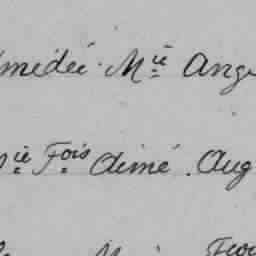 médée Mie Ange
ie Fois Aimé. Aug